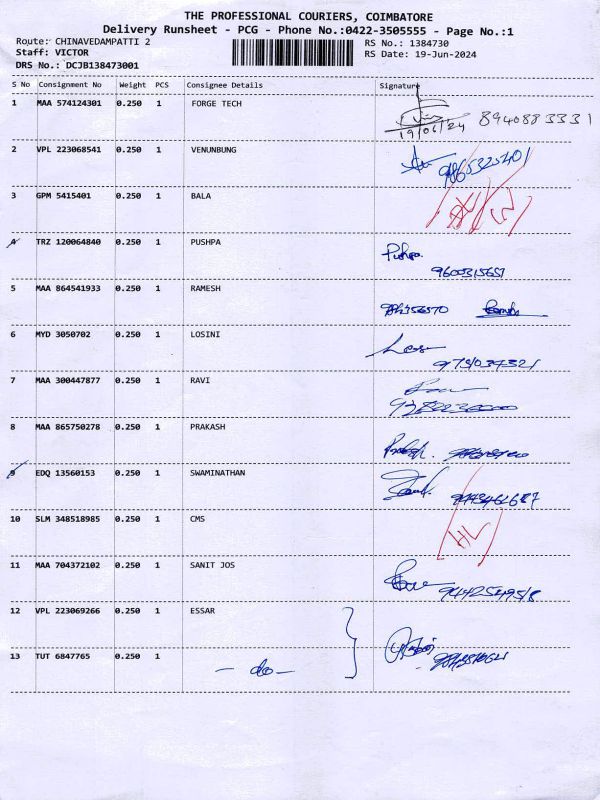 THE PROFESSIONAL COURIERS, COIMBATORE
Delivery Runsheet - PCG - Phone No.:0422-3505555 - Page No.:1
Route: CHINAVEDAMPATTI 2 RS No.: 1384730
Staff: VICTOR RS Date: 19-Jun-2024
DRS No.: DCJB138473001
S No Consignment No Weight PCS Consignee Details Signature
1 MAA 574124301 0.250 1 FORGE TECH 8940883331
19/06/24
2 VPL 223068541 0.250 1 VENUNBUNG 9865325401
3 GPM 5415401 0.250 1 BALA
4 TRZ 120064840 0.250 1 PUSHPA Pushpa.
9600315651
5 MAA 864541933 0.250 1 RAMESH
6 MYD 3050702 0.250 1 LOSINI
9751039321
7 MAA 300447877 0.250 1 RAVI
8 MAA 865750278 0.250 1 PRAKASH
9 EDQ 13560153 0.250 1 SWAMINATHAN
9443462687
10 SLM 348518985 0.250 1 CMS
11 MAA 704372102 0.250 1 SANIT JOS
12 VPL 223069266 0.250 1 ESSAR
13 TUT 6847765 0.250 1 - do -